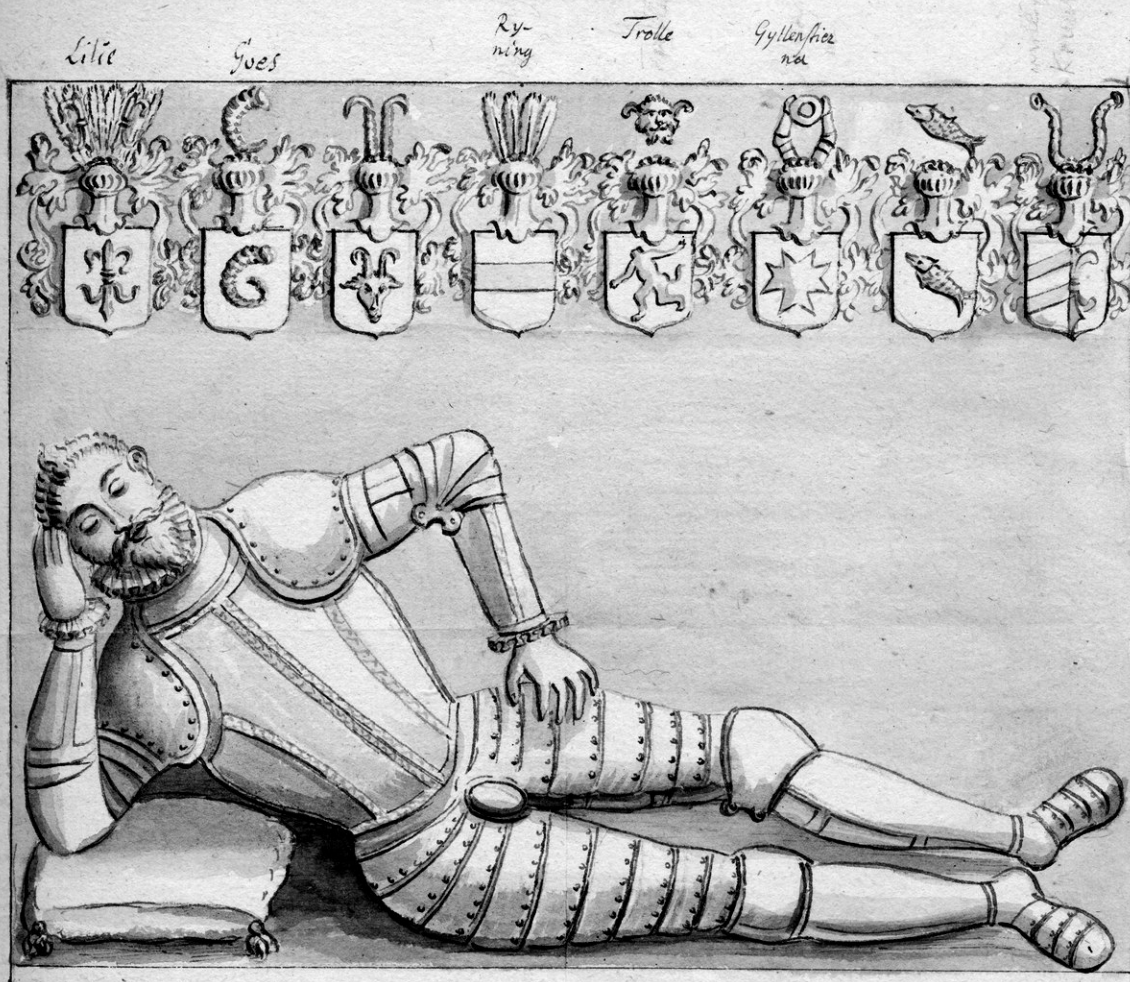 Lilie
Goes
Ry-
ning
Trolle
Gyllenstier
na